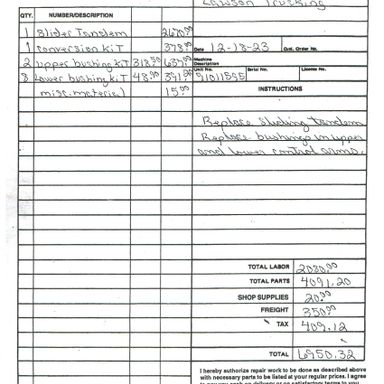 Lawson Trucking
QTY. NUMBER/DESCRIPTION
1 Slider Tandem
1 conversion kit 378.00
Date 12-18-23 Cust. Order No.
2 upper bushing kit 318.50 637.00
Machine Description
8 Lower bushing kit 48.90 391.20
Unit No. Serial No. License No.
misc. material 15.00
INSTRUCTIONS
Replace sliding tandem
Replace bushings in upper
and lower control arms.
TOTAL LABOR 2080.00
TOTAL PARTS 4091.20
SHOP SUPPLIES 20.00
FREIGHT 350.00
TAX 409.12
TOTAL 6950.32
I hereby authorize repair work to be done as described above
with necessary parts to be listed at your regular prices. I agree